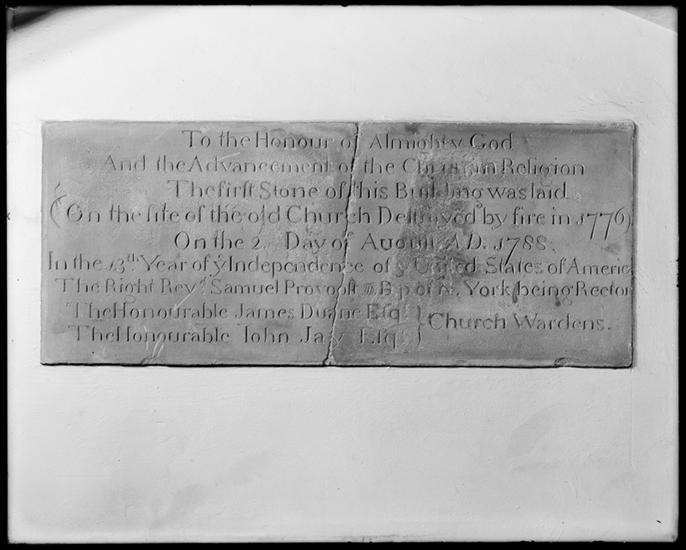 To the Honour of Almighty God
And the Advancement of the Christian Religion
The firſt Stone of this Building was laid
(On the ſite of the old Church Destroyed by fire in 1776)
On the 2 Day of Auguſt A.D. 1788
In the 13th Year of ẏ Independence of ẏ United States of America
The Right Revd Samuel Provooſt York being Rector
The Honourable James Duane Esq
The Honourable Iohn Jay Esq } Church Wardens.